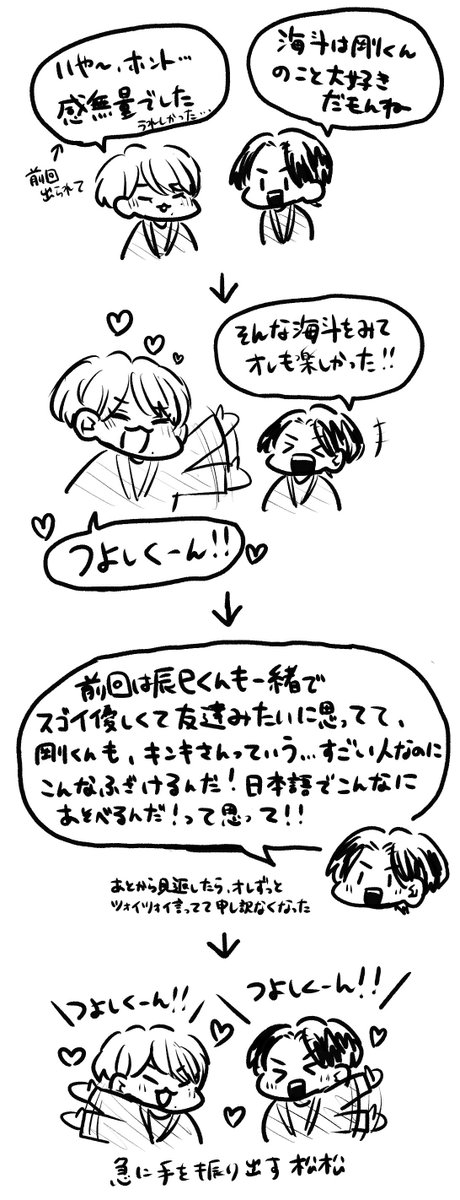 いや〜、ホント…
感無量でした
うれしかった…
前回
出られて
海斗は剛くん
のこと大好き
だもんね
そんな海斗をみて
オレも楽しかった!!
つよしくーん!!
前回は辰巳くんも一緒で
スゴイ優しくて友達みたいに思ってて、
剛くんも、キンキさんっていう…すごい人なのに
こんなふざけるんだ!日本語でこんなに
あそべるんだ!って思って!!
あとから見返したら、オレずっと
ツォイツォイ言ってて申し訳なくなった
つよしくーん!!
つよしくーん!!
急に手を振り出す松松